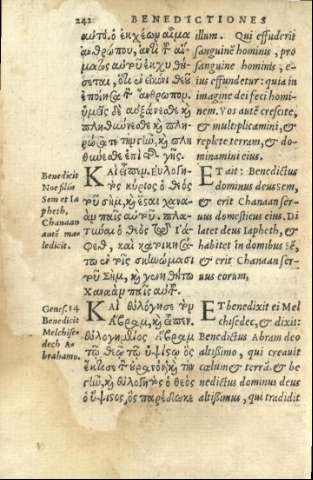 242 BENEDICTIONES
αὐτό. ὁ ἐκχέων αἷμα
ἀνθρώπου, ἀντὶ τ̃ αἵ-
ματος αὐτοῦ ἐκχυθή-
σεται, ὅτι ἐν εἰκόνι θεοῦ
ἐποίησα τ̃ ἄνθρωπον.
ὑμεῖς δὲ αὐξάνεσθε κὶ
πληθύνεσθε, κὶ πλη-
ρώσατε τὴν γῆν, κὶ πλη
θύνεσθε ἐπὶ τ̃ γῆς.
illum. Qui effuderit
sanguinē hominis, pro
sanguine hominis, e-
ius effundetur: quia in
imagine dei feci homi-
nem. Vos autē crescite,
& multiplicamini, &
replete terram, & do-
minamini eius.
Benedicit
Noe filiis
Sem et Ia
pheth,
Chanaan
autē ma-
ledicit.
ΚΑὶ εἶπεν. Εὐλογη-
τὸς κύριος ὁ θεὸς
τοῦ σὴμ, κὶ ἔσται χανα-
ὰν παῖς αὐτοῦ. πλα-
τύναι ὁ θεὸς τῷ Ιά-
φεθ, καὶ κατοικησά-
τω ἐν τοῖς σκηνώμασι
τοῦ Σήμ, κὶ γενηθήτω
Χαναὰν παῖς αὐτ̃.
ET ait: Benedictus
dominus deus Sem,
& erit Chanaan ser-
uus domesticus eius. Di
latet deus Iapheth, &
habitet in domibus sē,
& erit Chanaan ser-
uus eorum,
Genes. 14
Benedicit
Melchise-
dech A-
brahamo.
ΚΑὶ εὐλόγησε τὸν
Αβραμ, κὶ εἶπεν.
εὐλογημένος Αβραμ
τῷ θεῷ τῷ ὑψίστῳ ὃς
ἔκτισε τ̃ οὐρανὸν κὶ τὴν
γῆν, κὶ εὐλογητὸς ὁ θεὸς
ὁ ὕψιστος, ὃς παρέδωκε
ET benedixit ei Mel
chisedec, & dixit:
Benedictus Abram deo
altissimo, qui creauit
cœlum & terrā. & be
nedictus dominus deus
altissimus, qui tradidit